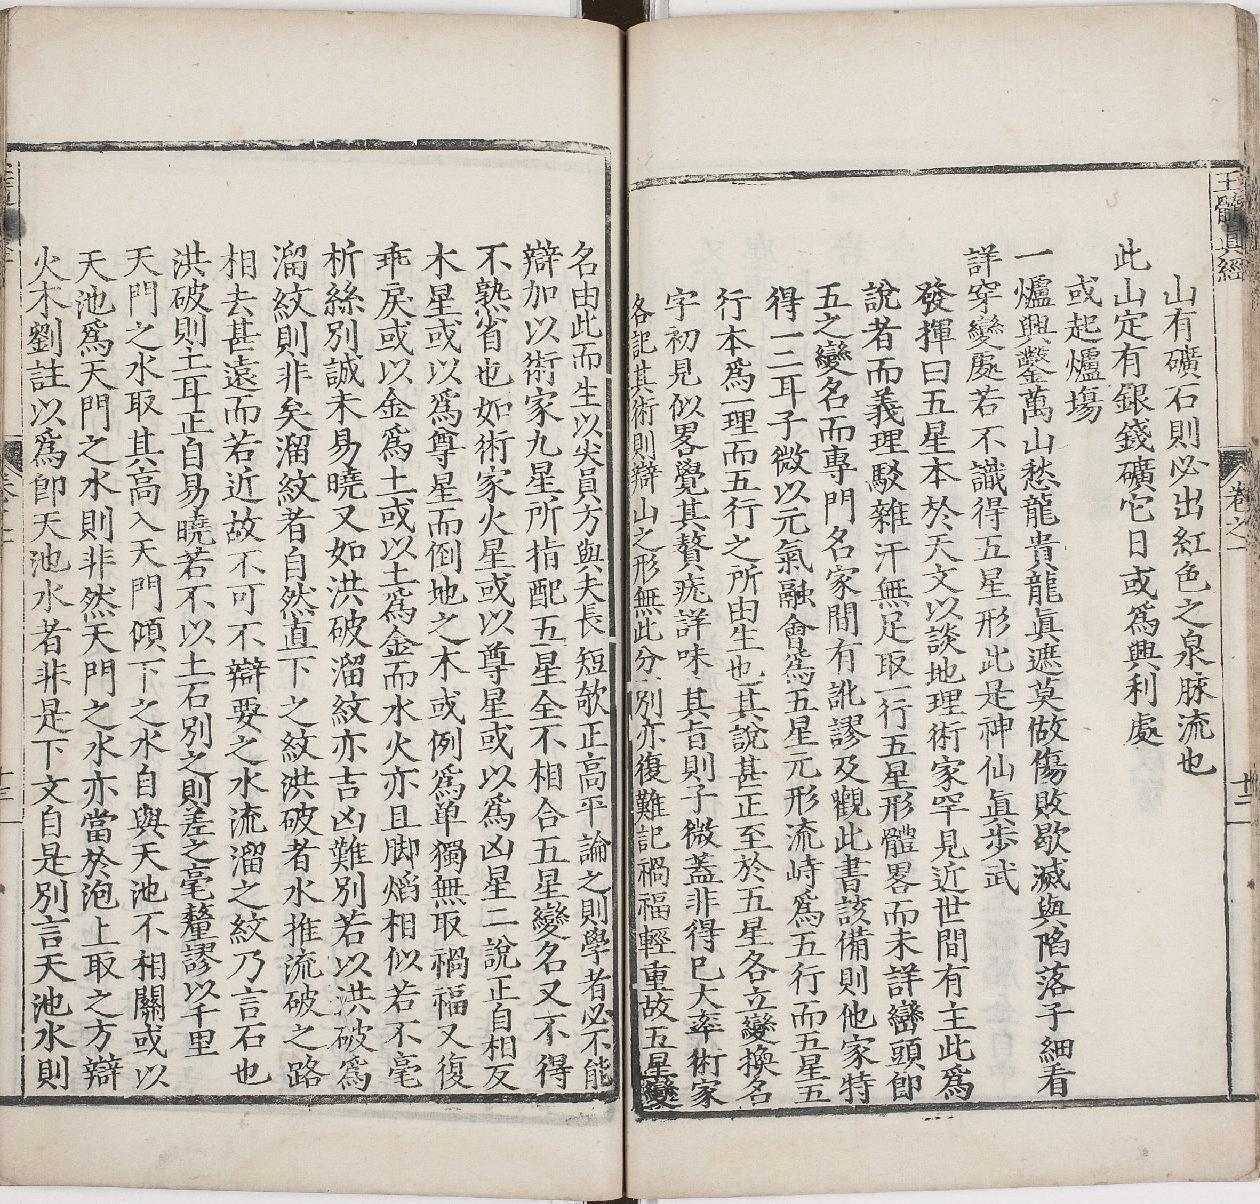 玉髓眞經
卷之一
十二
山有礦石則必出紅色之泉脉流也
此山定有銀錢礦它日或爲興利處
或起爐塲
一爐興鑿萬山愁龍貴龍眞遮莫做傷敗歇滅與陷落子細看
詳穿變處若不識得五星形此是神仙眞步武
發揮曰五星本於天文以談地理術家罕見近世間有主此爲
說者而義理駁雜汗無足取一行五星形體畧而未詳巒頭卽
五之變名而專門名家間有訛謬及觀此書該備則他家特
得一二耳子微以元氣融會爲五星元形流峙爲五行而五星五
行本爲一理而五行之所由生也其說甚正至於五星各立變換名
字初見似畧覺其贅疣詳味其旨則子微蓋非得巳大率術家
各記其術則辯山之形無此分別亦復難記禍福輕重故五星變
名由此而生以尖員方與夫長短欹正高平論之則學者必不能
辯加以術家九星所指配五星全不相合五星變名又不得
不熟省也如術家火星或以尊星或以爲凶星二說正自相反
木星或以爲尊星而倒地之木或例爲單獨無取禍福又復
乖戾或以金爲土或以土爲金而水火亦且脚熖相似若不毫
析絲別誠未易曉又如洪破溜紋亦吉凶難別若以洪破爲
溜紋則非矣溜紋者自然直下之紋洪破者水推流破之路
相去甚遠而若近故不可不辯要之水流溜之紋乃言石也
洪破則土耳正自易曉若不以土石別之則差之毫釐謬以千里
天門之水取其高入天門傾下之水自與天池不相關或以
天池爲天門之水則非然天門之水亦當於泡上取之方辯
火木劉註以爲卽天池水者非是下文自是別言天池水則